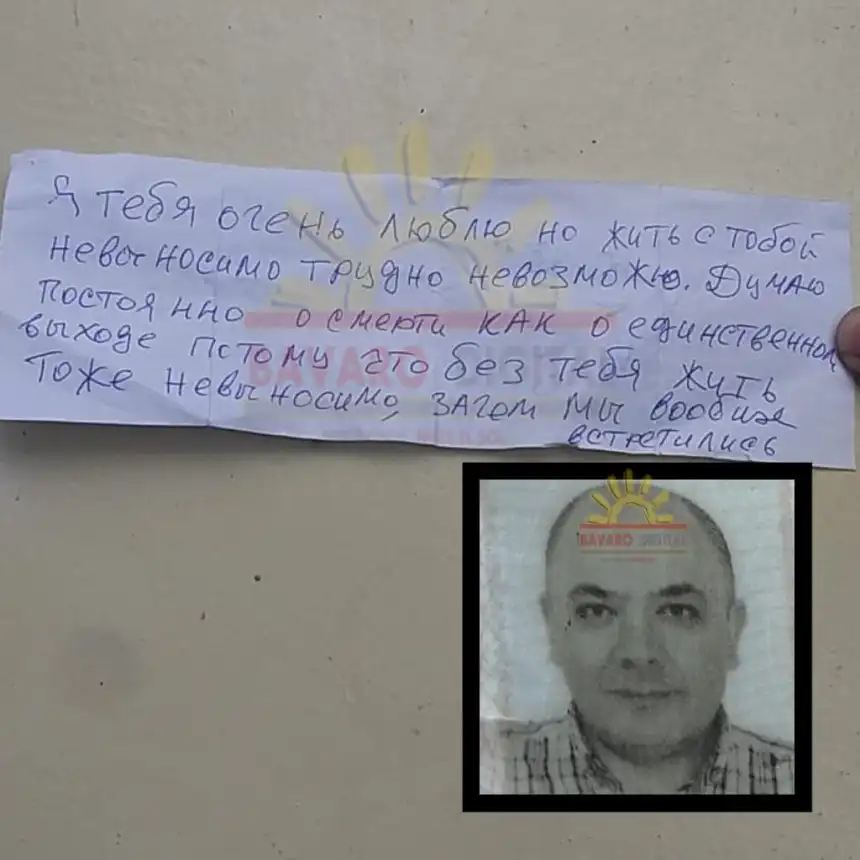 Я тебя очень люблю но жить с тобой
невыносимо трудно невозможно. Думаю
постоянно о смерти как о единственном
выходе потому что без тебя жить
тоже невыносимо, зачем мы вообще
встретились
BAVARO DIGITAL
BAVARO DIGITAL